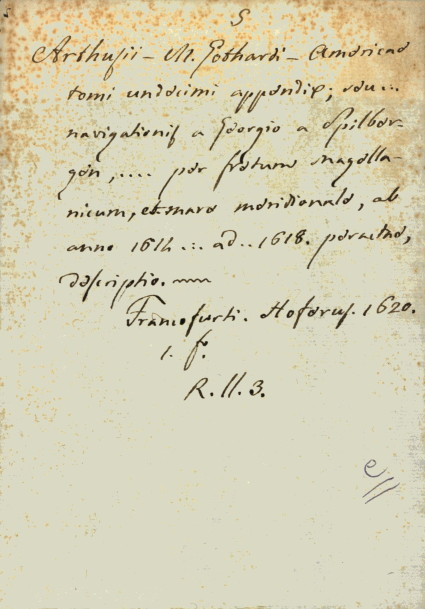 5
Arthusii - M. Gothardi - Americae
tomi undecimi appendix; seu...
navigationis a Georgio a Spilber-
gen,.... per fretum magella-
nicum, et mare meridionale, ab
anno 1614 ... ad .. 1618. peractae,
descriptio.
Francofurti. Hoferus. 1620.
1. f.
R. ll. 3.
e